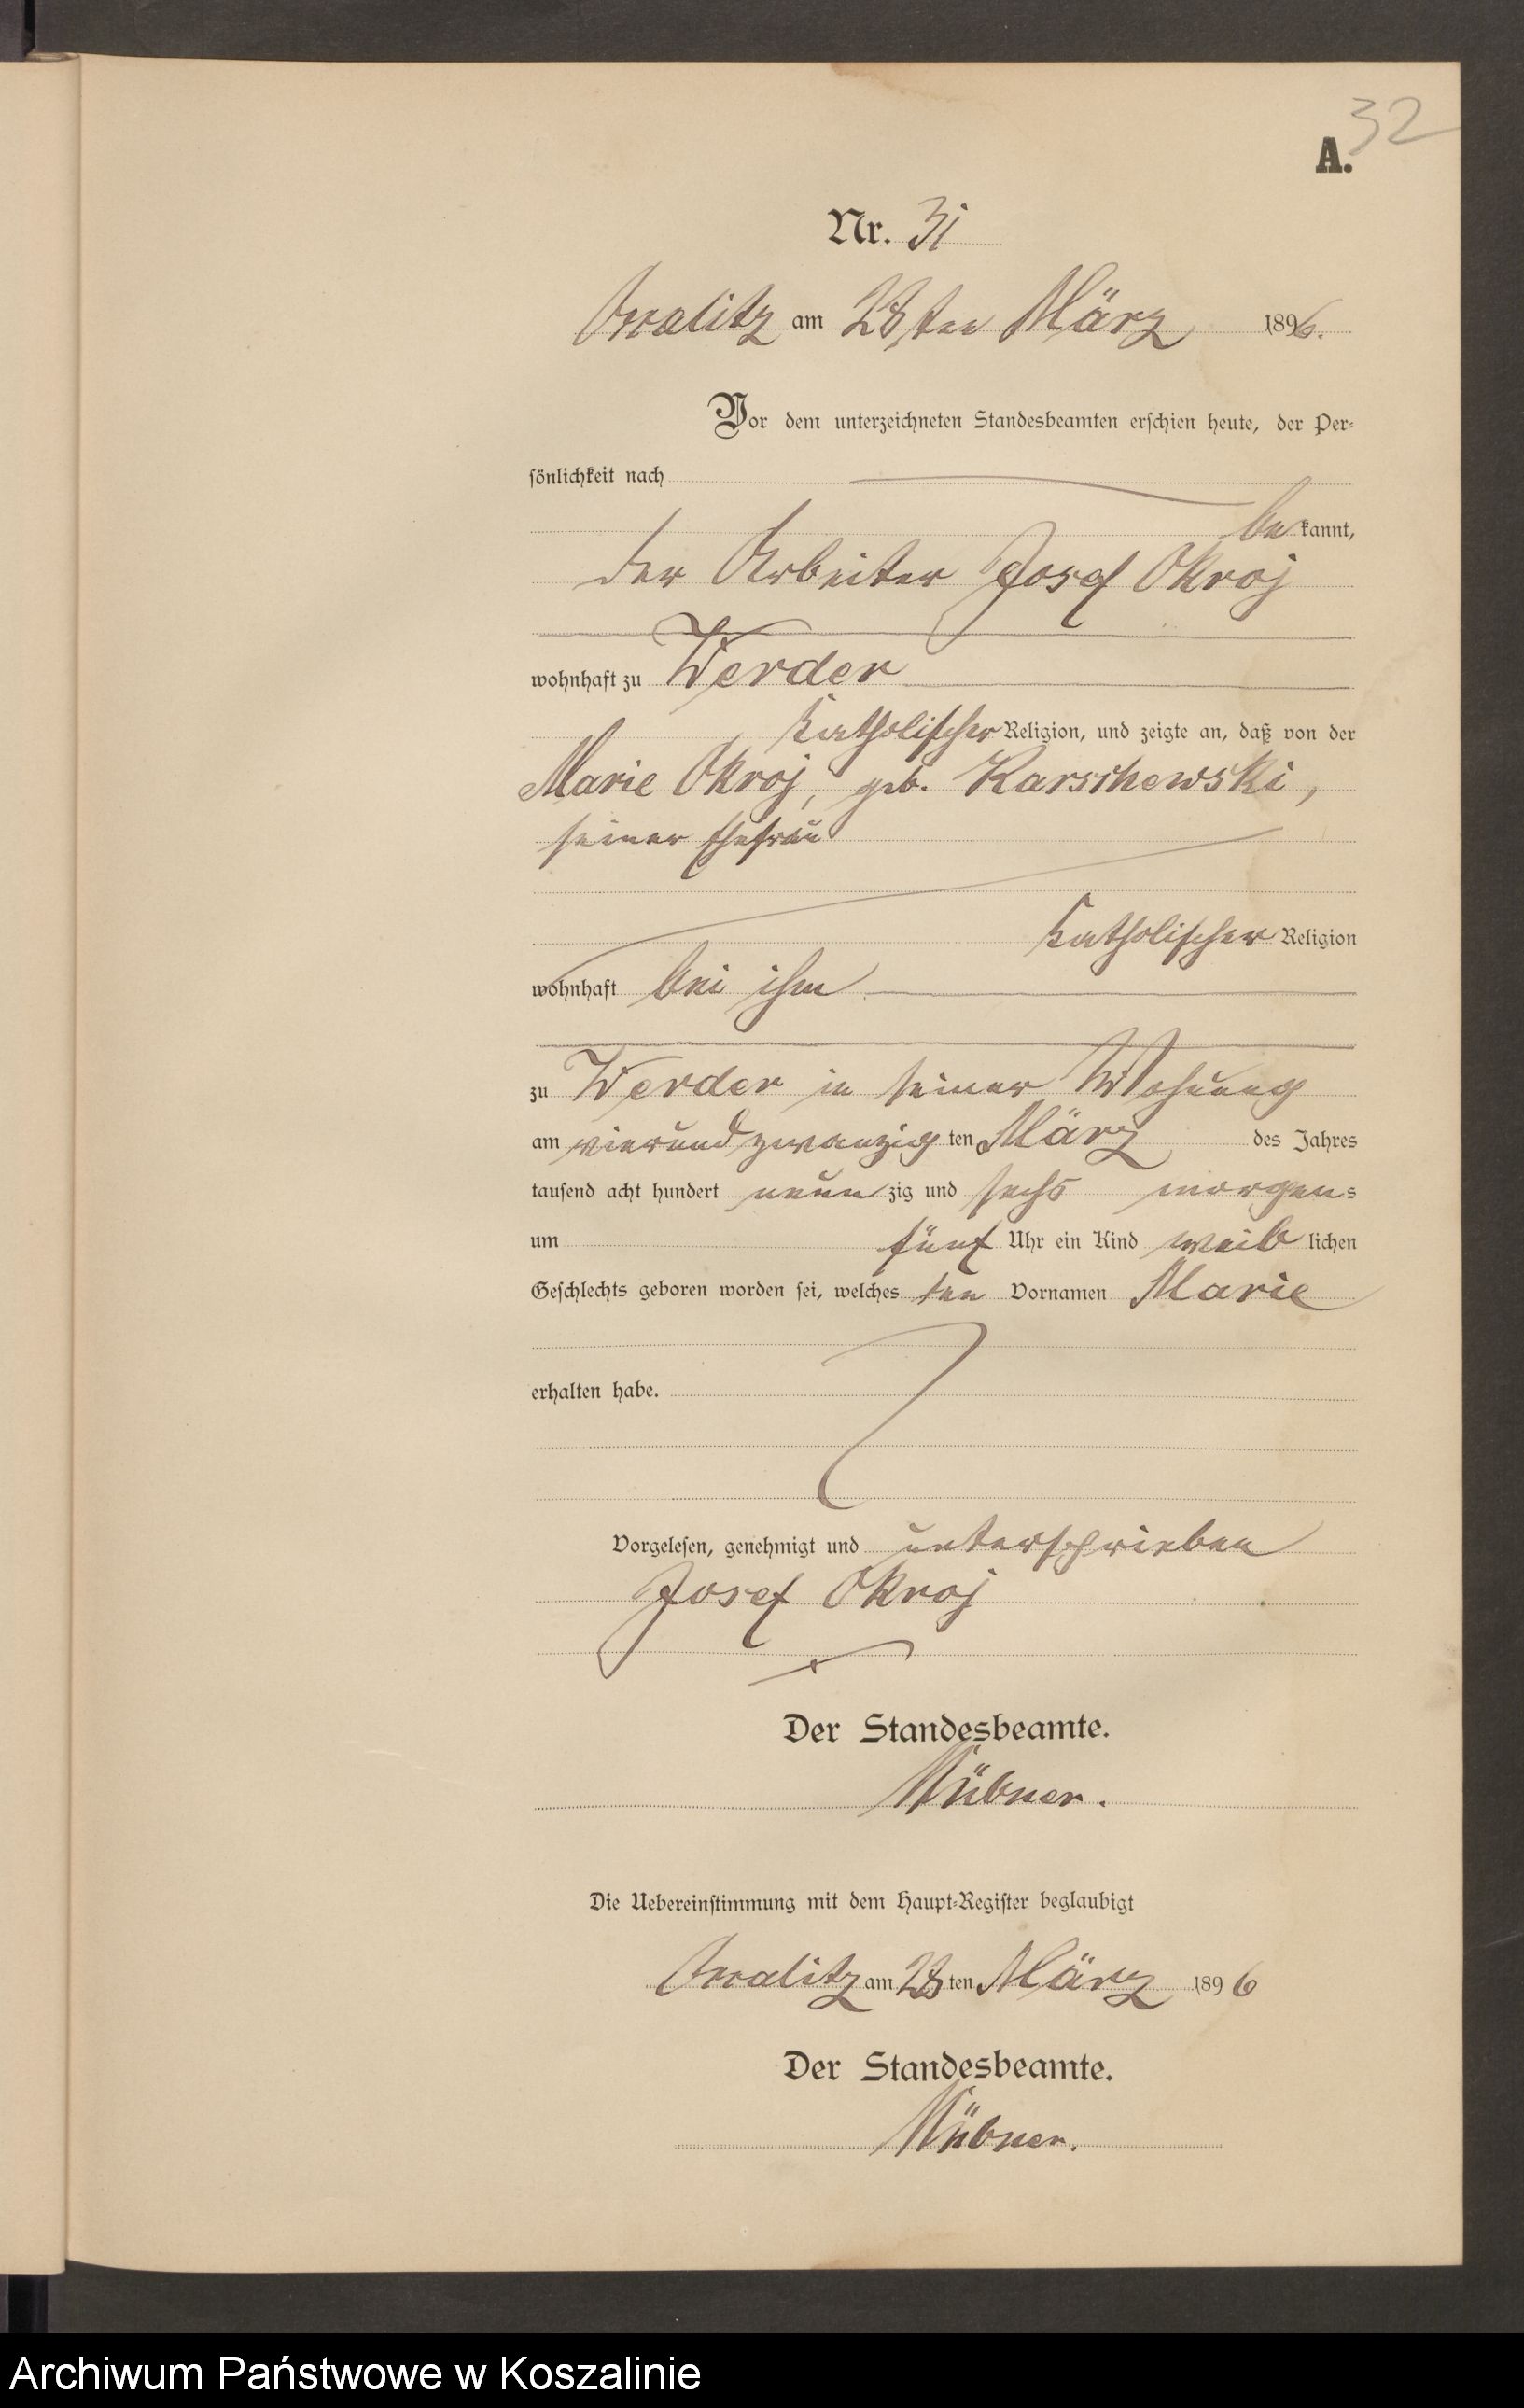 32
A.
Nr. 31
am 28ten März 1896.
Vor dem unterzeichneten Standesbeamten erschien heute, der Per-
sönlichkeit nach
bekannt,
der Arbeiter Josef Okroj
wohnhaft zu Werder
katholischer Religion, und zeigte an, daß von der
Marie Okroj, geb. Karschewski,
seiner Ehefrau
katholischer Religion
wohnhaft bei ihm
zu Werder in seiner Wohnung
am vierundzwanzigten März des Jahres
tausend acht hundert neunzig und sechs morgens
um fünf Uhr ein Kind weiblichen
Geschlechts geboren worden sei, welches den Vornamen Marie
erhalten habe.
Vorgelesen, genehmigt und unterschrieben
Josef Okroj
Der Standesbeamte.
Die Uebereinstimmung mit dem Haupt-Register beglaubigt
am 28ten März 1896
Der Standesbeamte.
Archiwum Państwowe w Koszalinie